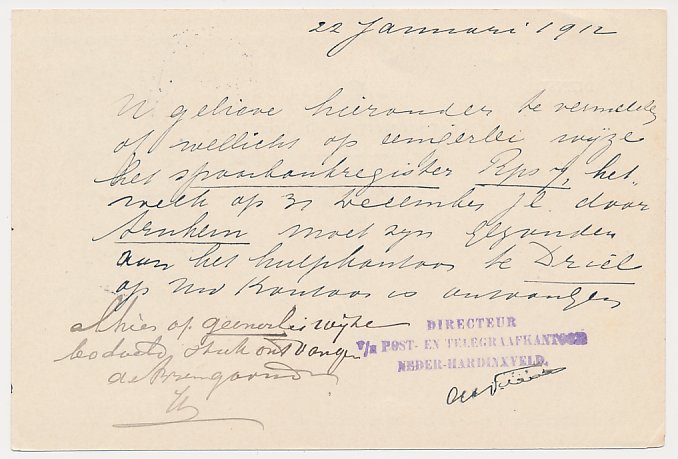 22 Januari 1912
U gelieve hieronder te vermelden
of wellicht op eenigerlei wijze
het spaarbankregister Rps 9, het
welk op 31 December jl. door
Arnhem moet zijn gezonden
aan het hulpkantoor te Driel
op Uw Kantoor is ontvangen
Alhier op geenerlei wijze
bedoeld stuk ontvangen
DIRECTEUR
v/h POST- EN TELEGRAAFKANTOOR
NEDER-HARDINXVELD.